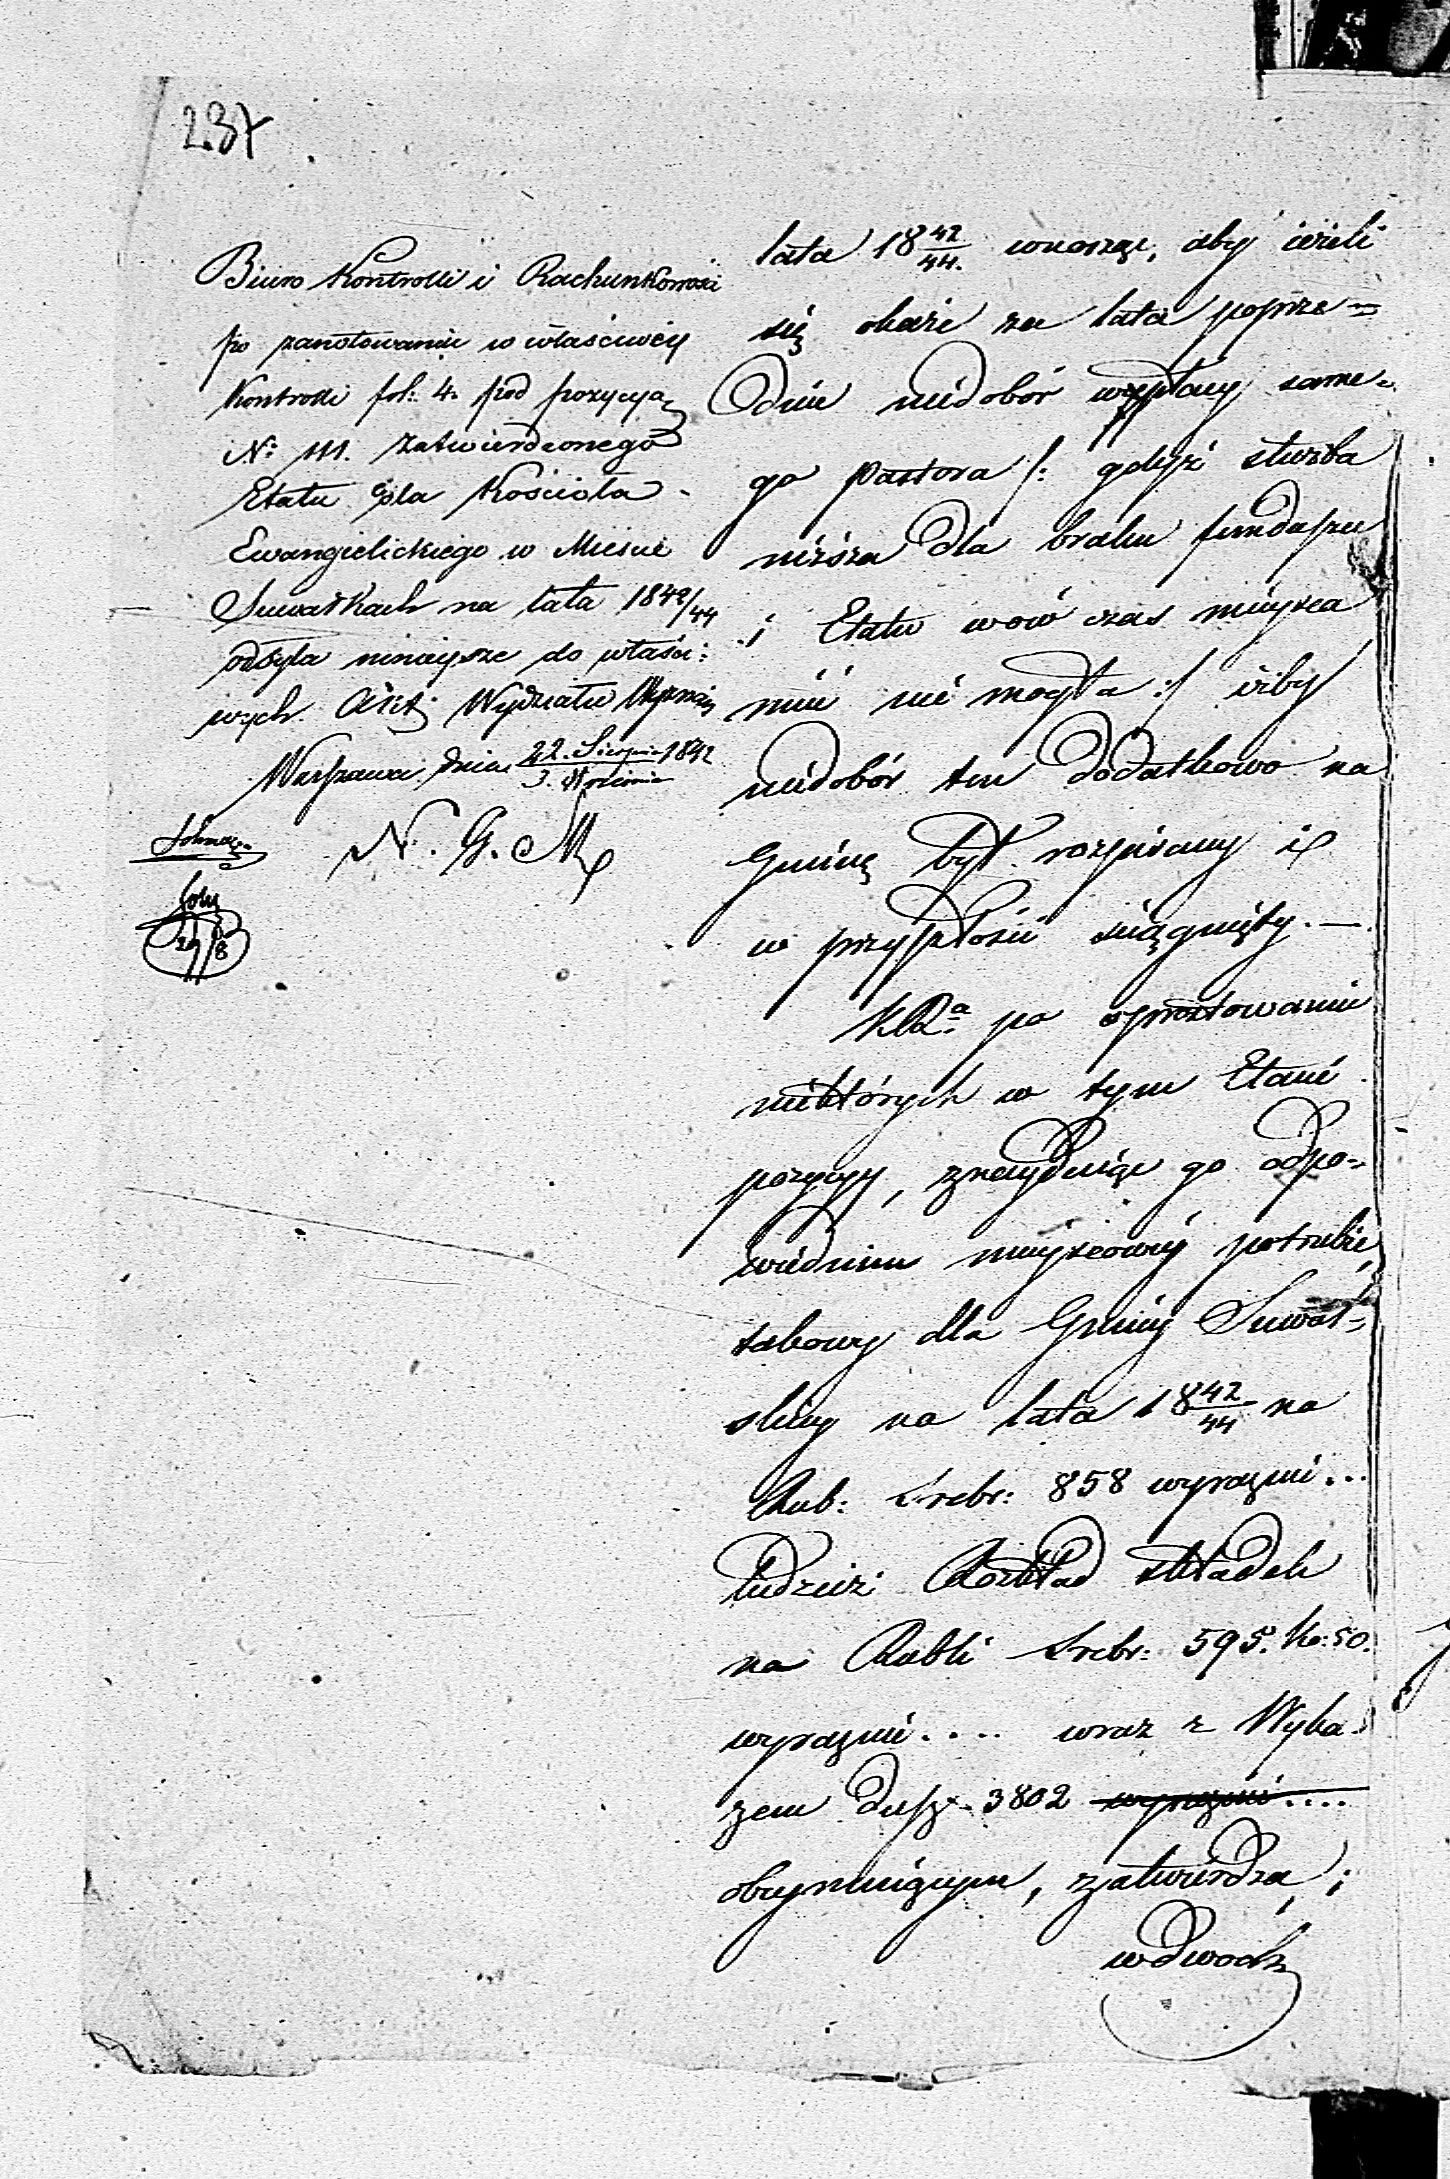 237
Biuro Kontrolli i Rachunkowości
po zanotowaniu w właściwéy
Kontrolli fol: 4. pod pozycyą
No: 111. zatwierdzonego
Etatu dla Kościoła
Ewangielickiego w Mieście
Suwałkach na lata 1842/44
odsyła ninieysze do właści:
wych Akt Wydziału Wyznań
Warszawa dnia 22. Sierpnia 1842
3. Września
N. G.
29/8
lata 18 42/44. wnosząc, aby ieżeli
się okaże za lata poprze=
dnie niedobór wypłaty same=
go Pastora /: gdyż służba
niższa dla braku funduszu
i Etatu wów czas mieysca
mieć nie mogła :/ iżby
niedobór ten dodatkowo na
Gminę był rozpisany i
w przyszłości ściągnięty. —
KRa. po sprostowaniu
niektórych w tym Etacie
pozycyy, znayduiąc go odpo=
wiednim mieyscowéy potrzebie,
takowy dla Gminy Suwał=
skiey na lata 18 42/44 na
Rub: Srebr: 858 wyraznie...
tudzież Rozkład składek
na Rubli Srebr: 595. ko: 50.
wyraznie.... wraz z Wyka=
zem dusz 3802 wyraznie....
obeymuiącym, zatwierdza,;
w dwóch